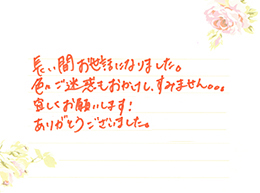 長い間お世話になりました。
色々ご迷惑もおかけし、すみません。。。
宜しくお願いします!
ありがとうございました。